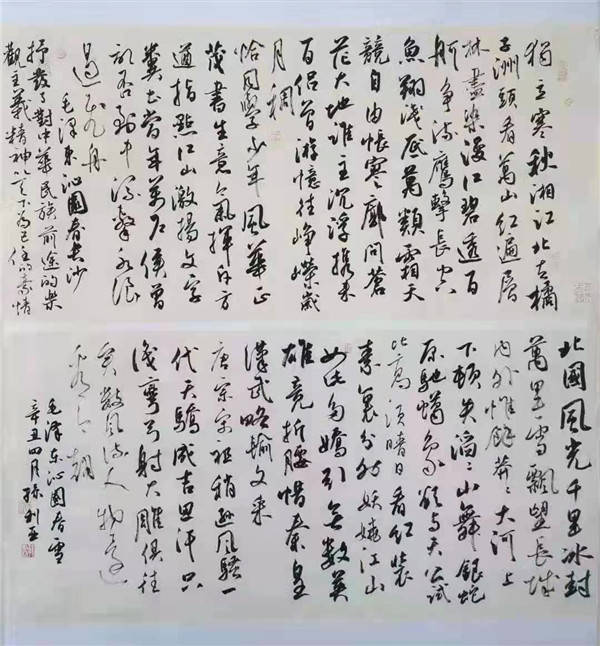 獨立寒秋湘江北去橘
子洲頭看萬山紅遍層
林盡染漫江碧透百
舸争流鷹擊長空
魚翔淺底萬類霜天
競自由悵寥廓問蒼
茫大地誰主沉浮携来
百侣曾游憶往崢嶸歲
月稠
恰同學少年風華正
茂書生意氣揮斥方
遒指點江山激揚文字
糞土當年萬户侯曾
記否到中流擊水浪
遏飛舟
毛澤東沁園春長沙
抒發了對中華民族前途的樂
觀主義精神以天下為己任的豪情
北國風光千里冰封
萬里雪飄望長城
内外惟餘莽々大河上
下頓失滔々山舞銀蛇
原馳蠟象欲與天公試
比高須晴日看紅裝
素裹分外妖嬈江山
如此多嬌引無數英
雄競折腰惜秦皇
漢武略輸文采
唐宗宋祖稍遜風騷一
代天驕成吉思汗只
識彎弓射大雕俱往
矣數風流人物還
看今朝
毛澤东沁園春雪
辛丑四月孫利